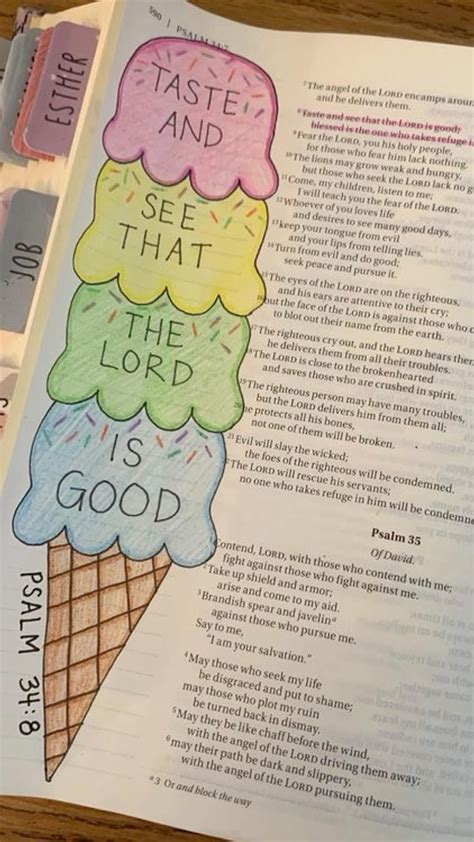 590 | PSALM 34:7
ESTHER
JOB
TASTE
AND
SEE
THAT
THE
LORD
IS
GOOD
PSALM 34:8
7 The angel of the LORD encamps
and he delivers them.
8 Taste and see that the LORD is good;
blessed is the one who takes refuge
9 Fear the LORD, you his holy people,
for those who fear him lack nothing.
10 The lions may grow weak and hungry,
but those who seek the LORD lack no
11 Come, my children, listen to me;
I will teach you the fear of the LORD.
12 Whoever of you loves life
and desires to see many good days,
13 keep your tongue from evil
and your lips from telling lies.
14 Turn from evil and do good;
seek peace and pursue it.
15 The eyes of the LORD are on the righteous,
and his ears are attentive to their cry;
16 but the face of the LORD is against those who
to blot out their name from the earth.
17 The righteous cry out, and the LORD hears
he delivers them from all their troubles.
18 The LORD is close to the brokenhearted
and saves those who are crushed in spirit.
19 The righteous person may have many troubles,
but the LORD delivers him from them all;
20 he protects all his bones,
not one of them will be broken.
21 Evil will slay the wicked;
the foes of the righteous will be condemned.
22 The LORD will rescue his servants;
no one who takes refuge in him will be
Psalm 35
Of David.
Contend, LORD, with those who contend with me;
fight against those who fight against me.
2 Take up shield and armor;
arise and come to my aid.
3 Brandish spear and javelin a
against those who pursue me.
Say to me,
"I am your salvation."
4 May those who seek my life
be disgraced and put to shame;
may those who plot my ruin
be turned back in dismay.
5 May they be like chaff before the wind,
with the angel of the LORD driving them away;
6 may their path be dark and slippery,
with the angel of the LORD pursuing them.
a 3 Or and block the way